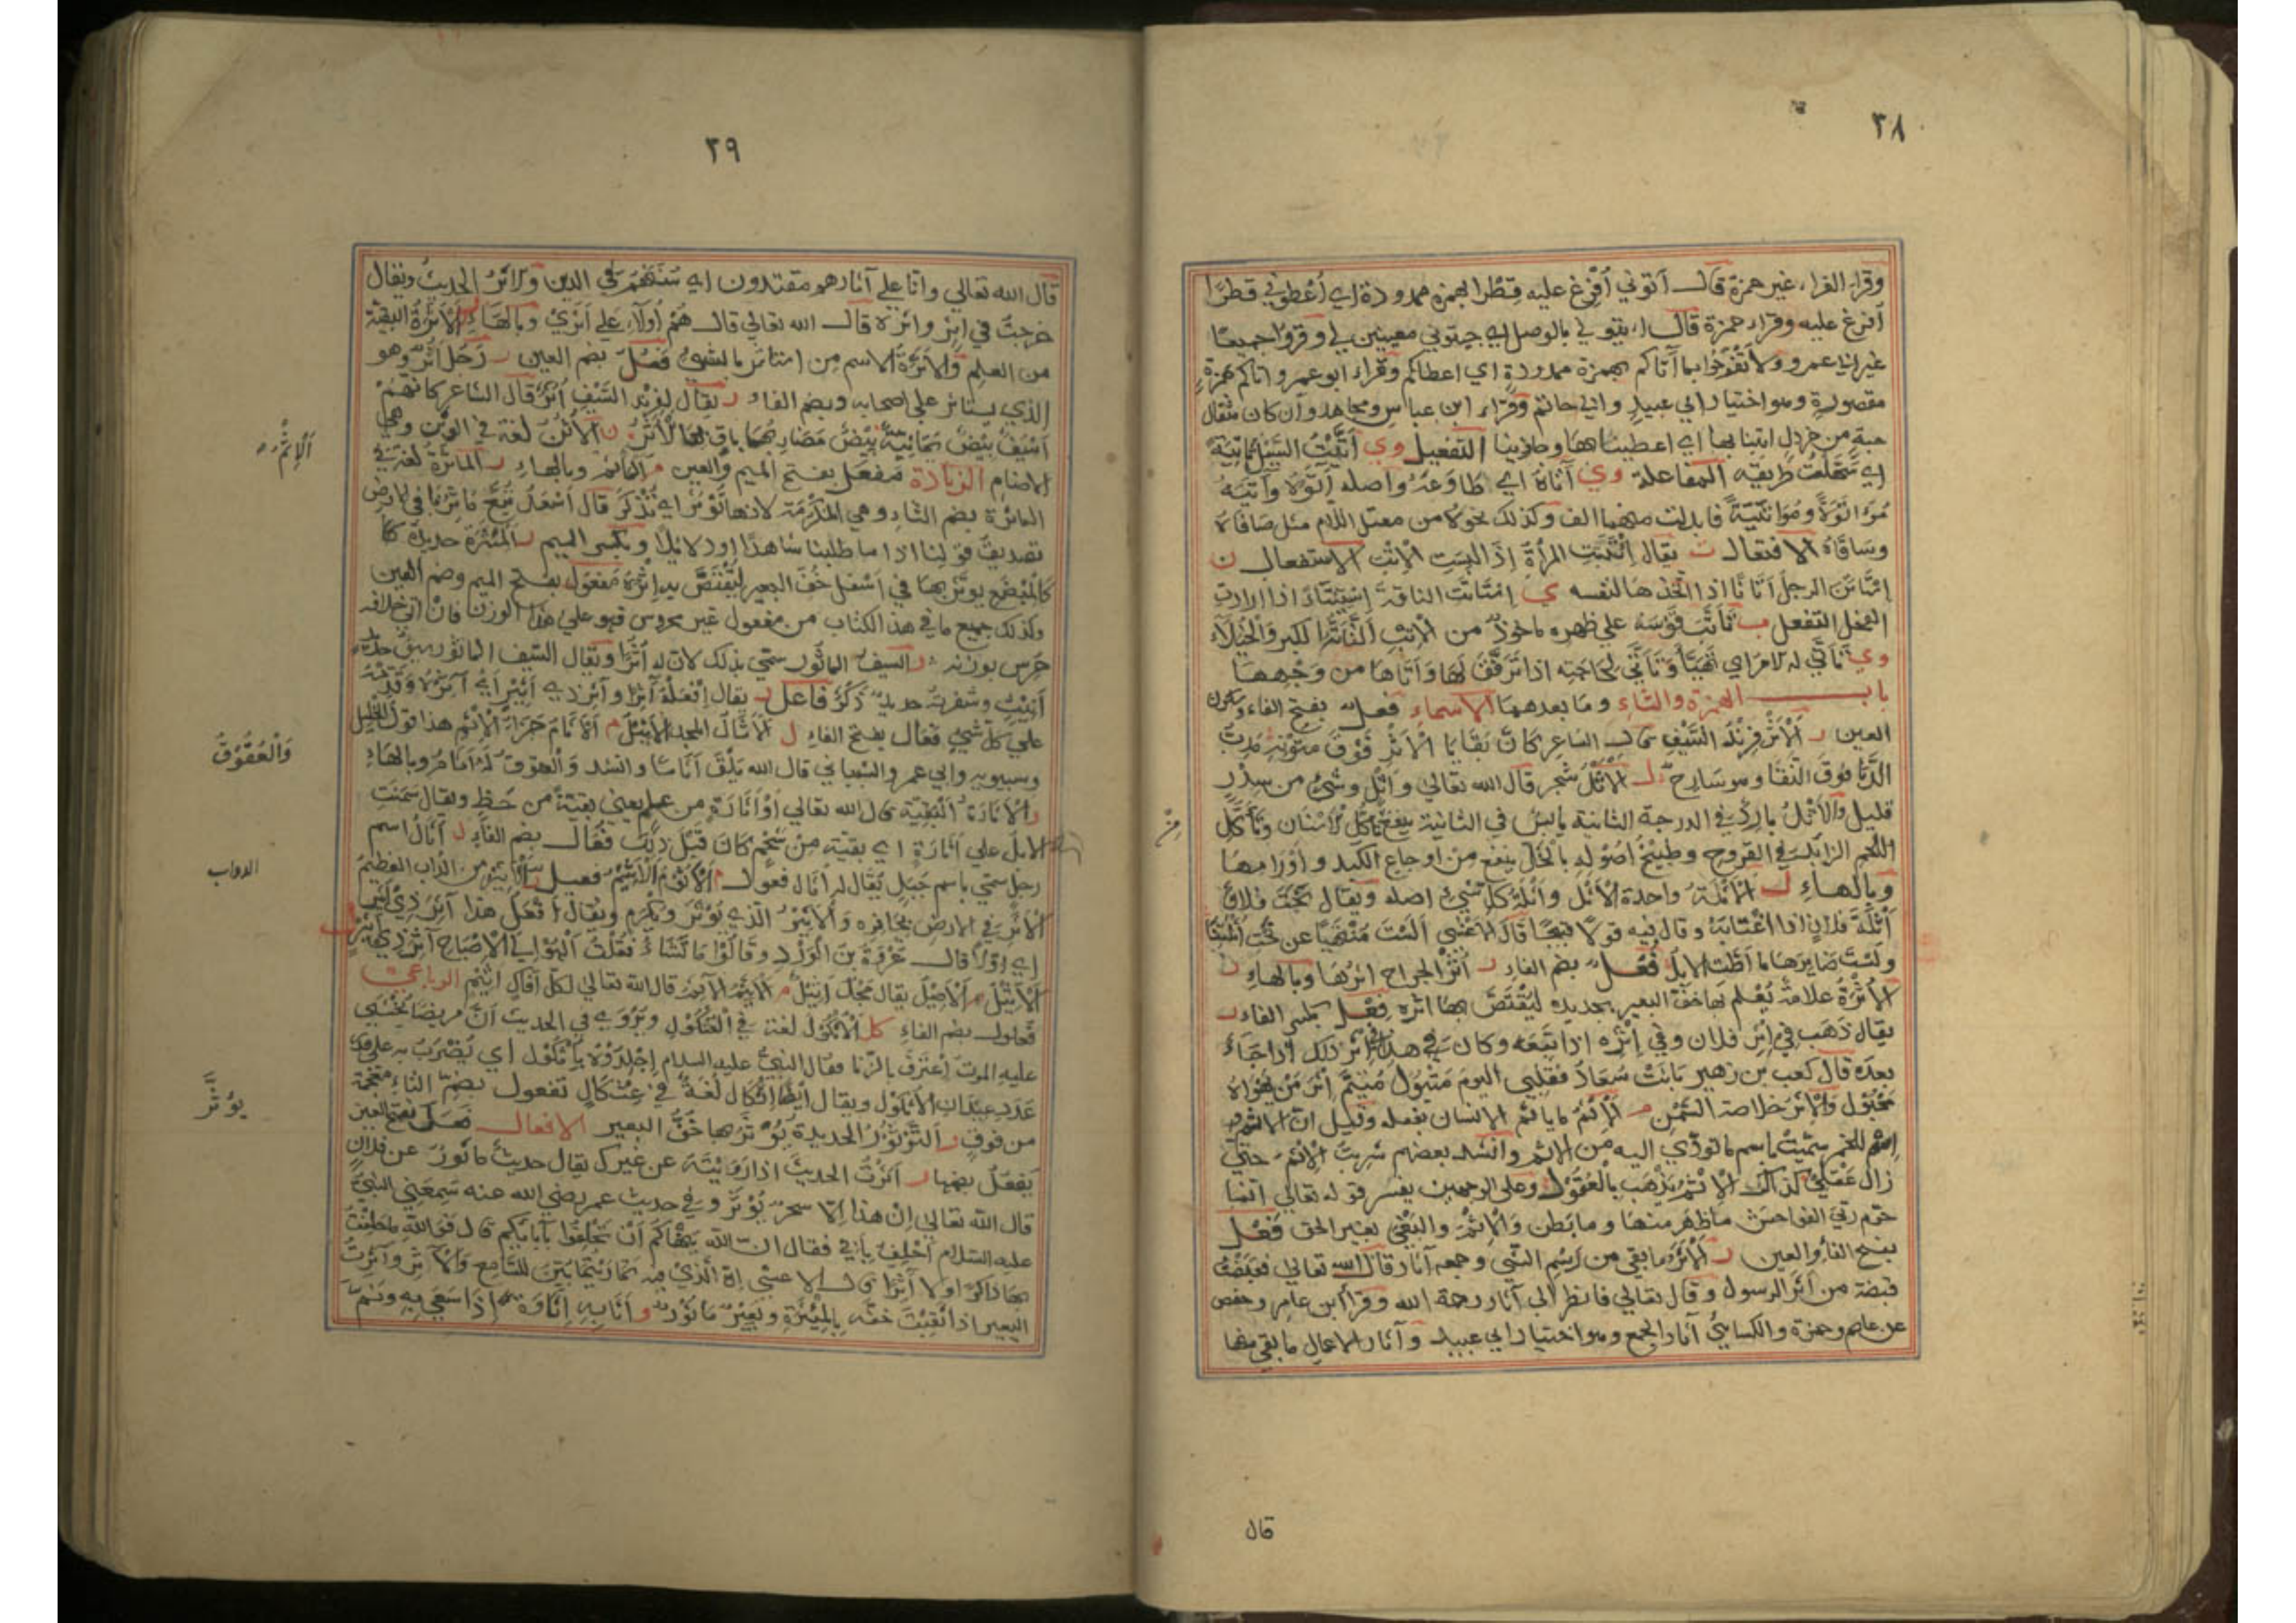 ٣٨
وقراء الفراء غير حمزة قال آتوني أفرغ عليه قطرا بهمزة ممدودة اي أعطوني قطرا
أفرغ عليه وقراء حمزة قال ايتوني بالوصل اي جيئوني معينين لي وقروا جميعا
غير ابي عمرو ولا تفرحوا بما آتاكم بهمزة ممدودة اي اعطاكم وقراء ابو عمرو اتاكم بهمزة
مقصورة وهو اختيار ابي عبيد وابي حاتم وقراء ابن عباس ومجاهد وان كان مثقال
حبة من خردل اتينا بها اي اعطيناها وجازينا التفعيل وي أتيت السيل تاتية
اي سهلت طريقه المفاعلة وي آتاه اي طاوعه واصله آتوه وآتيه
مواتوة ومواتية فابدلت منهما الف وكذلك نحوه من معتل اللام مثل صافاه
وساقاه الافتعال ت يقال ائتبت المراة إذا لبست الإتب الاستفعال ن
استاتن الرجل أتانا اذا اتخذها لنفسه ي استاتت الناقة استيتاء اذا ارادت
الفحل التفعل ب تأتب قوسه على ظهره ماخوذ من الإتب الكبر والخيلاء
وي تأتى له الامر اي تهيأ وتأتى لحاجته اذا ترفق لها وأتاها من وجهها
باب الهمزة والثاء وما بعدهما الاسماء فعل بفتح الفاء وسكون
العين ر الأثر فرند السيف قال الشاعر كان بقايا الأثر فوق متونه مدب
الدبا فوق النقا وهو سارح ل الأثل شجر قال الله تعالى وأثل وشئ من سدر
قليل والأثل بارد في الدرجة الثانية يابس في الثانية ينفع تأكل الأسنان وتأكل
اللحم الزائد في القروح وطبيخ أصوله بالخل ينفع من أوجاع الكبد وأورامها
وبالهاء ل الأثلة واحدة الأثل وأثلة كل شئ اصله ويقال نحت فلان
أثلة فلان اذا اغتابه وقال فيه قولا قبيحا قال الأعشى ألست منتهيا عن نحت أثلتنا
ولست ضايرها ما أطت الابل فعل بضم الفاء ر أثر الجراح اثرها وبالهاء ر
الأثرة علامة يعلم بها خف البعير بحديدة ليقتص بها اثره فعل بكسر الفاء ر
يقال ذهب في إثر فلان وفي إثره اذا تبعه وكان هذا في اثر ذلك اذا جاء
بعده قال كعب بن زهير بانت سعاد فقلبي اليوم متبول متيم إثر من يهواه
مخبول والإثر خلاصة السمن م الإثم ما ياثم الانسان بفعله وقيل ان الاثم
اسم للخمر سميت باسم ما تودي اليه من الاثم وانشد بعضهم شربت الاثم حتى
زال عقلي كذاك الإثم يذهب بالعقول وعلى الوجهين يفسر قوله تعالى انما
حرم ربي الفواحش ماظهر منها ومابطن والإثم والبغي بغير الحق فعل
بفتح الفاء والعين ر الأثر ما بقي من رسم الشئ وجمعه آثار قال الله تعالى فقبضت
قبضة من أثر الرسول وقال تعالى فانظر الى آثار رحمة الله وقرأ ابن عامر وحفص
عن عاصم وحمزة والكسائي آثار الجمع وهو اختيار ابي عبيد وآثار الاعمال ما بقي منها
قال
٣٩
قال الله تعالى وانا على آثارهم مقتدون اي سنتهم في الدين والاثر الحديث ويقال
خرجت في إثره واثره قال الله تعالى قال هم أولاء على أثري وبالهاء ر الأثرة البقية
من العلم والأثرة الاسم من استاثر بالشئ فعل بضم العين ر رجل أثر وهو
الذي يستاثر على اصحابه وبضم الفاء ر يقال لفرند السيف أثر قال الشاعر كانهم
أسيف بيض يمانية بيض مضاربها باق بها الأثر ن الأثن لغة في الوثن وهي
الاصنام الزيادة مفعل بفتح الميم والعين م المأثم وبالهاء ر المأثرة لغة في
الماثرة بضم الثاء وهي المكرمة لانها تؤثر اي تذكر قال أسعد تبع ماثرنا في الارض
تصديق قولنا اذا ما طلبنا شاهدا او دلائلا وبكسر الميم ر المئثرة حديدة
كالمبضع يوثر بها في أسفل خف البعير ليقتص به اثره مفعول بفتح الميم وضم العين
وكذلك جميع ما في هذا الكتاب من مفعول غير محروس فهو على هذا الوزن فان اتى خلافه
حرس بوزنه ر السيف الماثور سمي بذلك لان له أثرا ويقال السيف الماثور
أنيث وشفرته حديد ذكر فاعل ر يقال افعله آثرا وآثر ذي أثير اي آثره وقدمه
على كل شئ فعال بفتح الفاء ل الأثال المجد الأثيل م الأثام جزاء الإثم هذا قول الخليل
وسيبويه وابي عمر والشيباني قال الله يلق أثاما وانشد والعقوق له أثام وبالهاء
ر الأثارة البقية قال الله تعالى أو أثارة من علم يعني بقية من خط ويقال سمنت
الابل على أثارة اي بقية من شحم كان قبل ذلك فعال بضم الفاء ل أثال اسم
رجل سمي باسم جبل يقال له أثال فعول م الأثوم الأثيم فعيل ر الأثير من الداب العظيم
الأثر في الارض بحافره والأثير الذي يؤثر ويكرم ويقال افعل هذا آثر ذي أثير
اي اولا قال عروة بن الورد وقالوا ما تشاء فقلت ألهو الى الإصباح آثر ذي أثير
ل الأثيل الأصيل يقال مجد أثيل م الأثيم الآثم قال الله تعالى لكل أفاك أثيم الرباعي
فعلول بضم الفاء كل الأثكول لغة في العثكول ويروى في الحديث أن مريضا يخشى
عليه الموت اعترف بالزنا فقال النبي عليه السلام إجلدوه بأثكول أي يضرب به على
عدد عيدان الأثكول ويقال أيضا إثكال لغة في عثكال تفعول بضم الثاء معجمة
من فوق ر التؤثور الحديدة يؤثر بها خف البعير الافعال فعل بفتح العين
يفعل بضمها ر أثرت الحديث اذا رويته عن غيرك يقال حديث مأثور عن فلان
قال الله تعالى إن هذا الا سحر يؤثر وفي حديث عمر رضي الله عنه سمعني النبي
عليه السلام أحلف بأبي فقال ان الله ينهاكم أن تحلفوا بآبائكم قال فوالله ما حلفت
بها ذاكرا ولا آثرا قال الاعشى إن الذي فيه تماريتما بين للسامع والآثر وأثرت
البعير اذا نقبت خفه بالمئثرة وبعير مأثور و أثا به إثاوة إذا سعى به ونم
أَلإثم
وَالْعُقُوقُ
الدواب
يؤثر